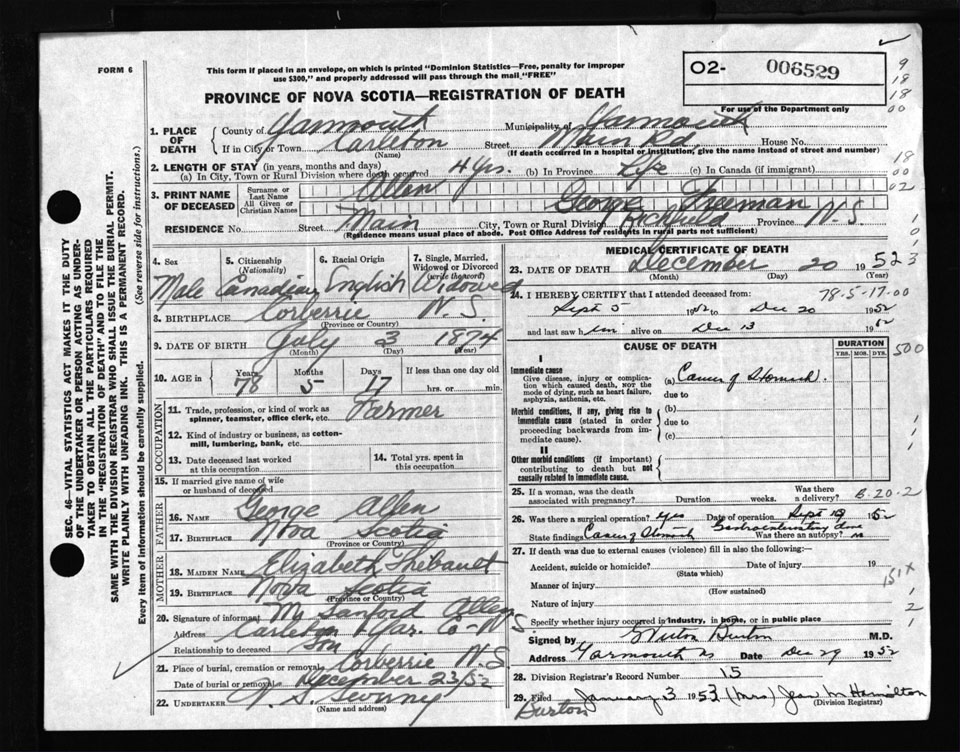 FORM 6
This form if placed in an envelope, on which is printed "Dominion Statistics—Free, penalty for improper
use $300," and properly addressed will pass through the mail "FREE"
O2- 006529
For use of the Department only
PROVINCE OF NOVA SCOTIA—REGISTRATION OF DEATH
9
18
18
00
18
02
1. PLACE OF DEATH
County of Yarmouth Municipality of Yarmouth
If in City or Town Carleton Street Main Rd. House No.
(Name) (If death occurred in a hospital or institution, give the name instead of street and number)
2. LENGTH OF STAY (in years, months and days)
(a) In City, Town or Rural Division where death occurred 4 Yrs. (b) In Province Life (c) In Canada (if immigrant)
3. PRINT NAME OF DECEASED
Surname or Last Name Allen
All Given or Christian Names George Freeman
RESIDENCE No. Street Main City, Town or Rural Division Richfield Province N.S.
(Residence means usual place of abode. Post Office Address for residents in rural parts not sufficient)
4. Sex 5. Citizenship (Nationality) 6. Racial Origin 7. Single, Married, Widowed or Divorced (write the word)
Male Canadian English Widowed
8. BIRTHPLACE Corberrie N.S.
(Province or Country)
9. DATE OF BIRTH July 3 1874
(Month) (Day) (Year)
10. AGE in Years Months Days If less than one day old
78 5 17 hrs. or min.
OCCUPATION
11. Trade, profession, or kind of work as spinner, teamster, office clerk, etc. Farmer
12. Kind of industry or business, as cotton-mill, lumbering, bank, etc.
13. Date deceased last worked at this occupation
14. Total yrs. spent in this occupation
15. If married give name of wife or husband of deceased
FATHER
16. NAME George Allen
17. BIRTHPLACE Nova Scotia
(Province or Country)
MOTHER
18. MAIDEN NAME Elizabeth Thibault
19. BIRTHPLACE Nova Scotia
(Province or Country)
20. Signature of informant Mr Sanford Allen
Address Carleton Yar. Co-N.S.
Relationship to deceased Son
21. Place of burial, cremation or removal Corberrie N.S.
Date of burial or removal December 23/52
22. UNDERTAKER
(Name and address)
MEDICAL CERTIFICATE OF DEATH
23. DATE OF DEATH December 20 1952
(Month) (Day) (Year)
78-5-17-00
24. I HEREBY CERTIFY that I attended deceased from:
Sept 5 1952 to Dec 20 1952
and last saw him alive on Dec 13 1952
CAUSE OF DEATH
DURATION
YRS. MOS. DYS.
I
Immediate cause
Give disease, injury or complication which caused death, not the mode of dying, such as heart failure, asphyxia, asthenia, etc.
(a) Cancer of Stomach.
due to
Morbid conditions, if any, giving rise to immediate cause (stated in order proceeding backwards from immediate cause).
(b)
due to
(c)
II
Other morbid conditions (if important) contributing to death but not causally related to immediate cause.
25. If a woman, was the death associated with pregnancy? Duration weeks. Was there a delivery?
B-20-2
26. Was there a surgical operation? yes Date of operation Sept 19 1952
State findings Cancer of Stomach Gastroenterostomy done Was there an autopsy? no
27. If death was due to external causes (violence) fill in also the following:—
Accident, suicide or homicide? Date of injury 19
(State which)
Manner of injury
(How sustained)
151X
Nature of injury
Specify whether injury occurred in industry, in home, or in public place
Signed by M.D.
Address Yarmouth NS Date Dec 29 1952
28. Division Registrar's Record Number 15
29. Filed January 3 1953 (Mrs) Jean M Hamilton
(Division Registrar)
Burton
500
SEC. 46—VITAL STATISTICS ACT MAKES IT THE DUTY
OF THE UNDERTAKER OR PERSON ACTING AS UNDERTAKER
TO OBTAIN ALL THE PARTICULARS REQUIRED
IN THE "REGISTRATION OF DEATH" AND TO FILE THE
SAME WITH THE DIVISION REGISTRAR WHO SHALL ISSUE THE BURIAL PERMIT.
WRITE PLAINLY WITH UNFADING INK. THIS IS A PERMANENT RECORD.
Every item of Information should be carefully supplied. (See reverse side for instructions.)